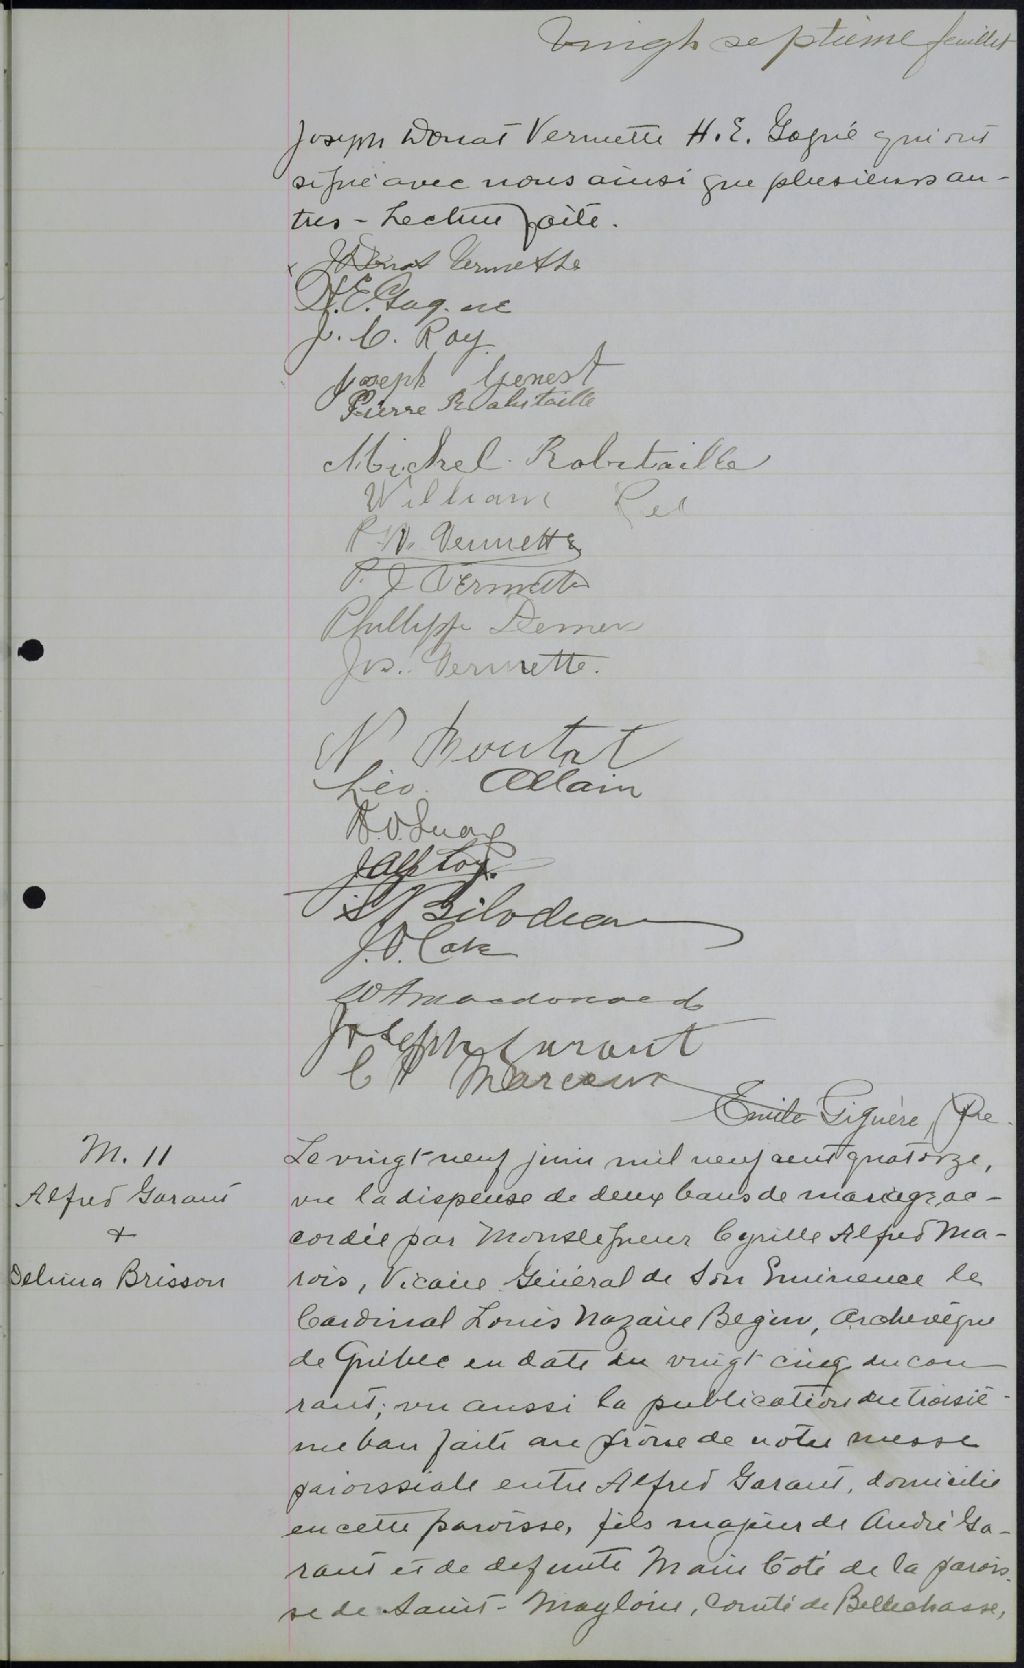 Vingt septième feuillet
Joseph Donat Vermette H. E. Gagné qui ont
signé avec nous ainsi que plusieurs au-
tres - Lecture faite.
x J Donat Vermette
H. E. Gagné
J. C. Roy
Joseph Genest
Pierre Robitaille
Michel Robitaille
William
P. W. Vermette
P. J Vermette
Phillippe
Jos. Vermette.
N
Léo Allain
J Alf Roy.
Bilodeau
J. O.
Macdonald
Joseph Garant
C Marceau
Emile Giguère, Ptre.
M. 11
Alfred Garant
+
Delima Brisson
Le vingt neuf juin mil neuf cent quatorze,
vu la dispense de deux bans de mariage ac-
cordée par Monseigneur Cyrille Alfred Ma-
rois, Vicaire Général de Son Eminence le
Cardinal Louis Nazaire Begin, Archevêque
de Québec en date du vingt cinq du cou-
rant; vu aussi la publication du troisiè-
me ban faite au prône de notre messe
paroissiale entre Alfred Garant, domicilié
en cette paroisse, fils majeur de André Ga-
rant et de defunte Marie Coté de la parois-
se de Saint-Magloire, Comté de Bellechasse,